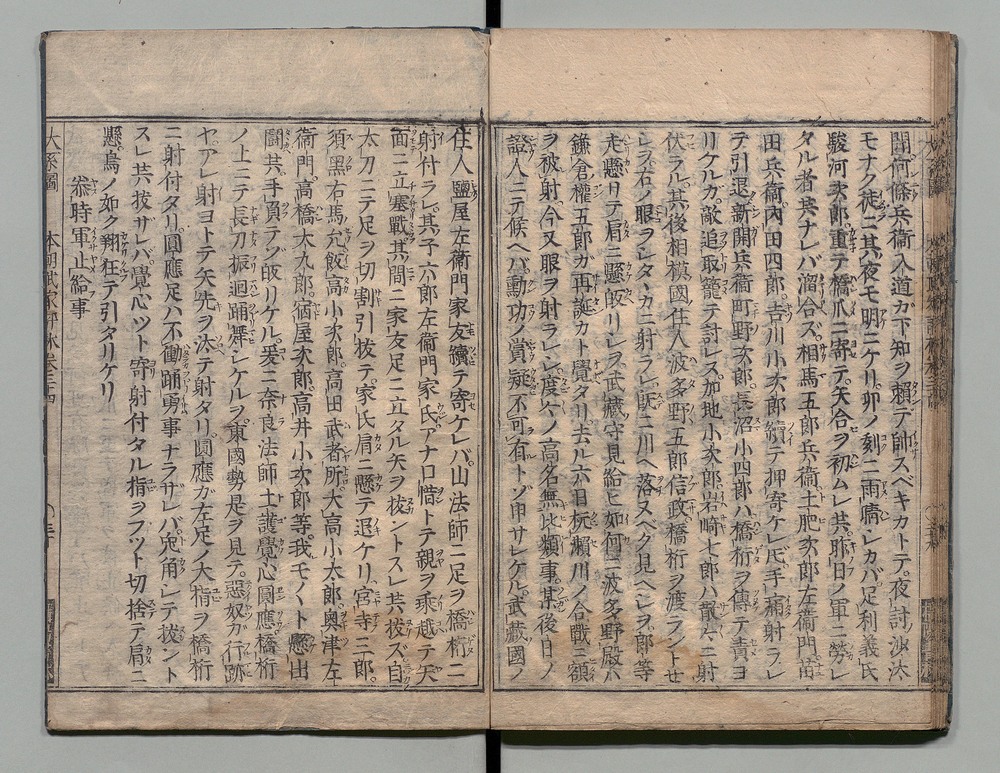 聞何條兵衞入道カ下知ヲ賴テ帥スベキカトテ夜討沙汰
モナク徒ニ其夜モ明ニケリ卯ノ刻ニ雨霽レカバ足利義氏
駿河次郎重テ橋爪ニ寄テ矢合ヲ初ムレ共昨日ノ軍ニ勞レ
タル者共ナレバ溜合ズ相馬五郎兵衞土肥次郎左衞門苗
田兵衞内田四郎吉川小次郎續テ押寄ケレ𪜈手痛射ラレ
テ引退新開兵衞町野次郎長沼小四郎ハ橋桁ヲ傳テ責ヨ
リケルガ敵追取籠テ討レヌ加地小次郎岩崎七郎ハ散々ニ射
伏ラル其後相模國住人波多野五郎信政橋桁ヲ渡ラントセ
レヲ右ノ眼ヲシタヽカニ射ラレ既ニ川ヘ落ヌベク見ヘシヲ郎等
走懸リテ肩ニ懸皈リシヲ武藏守見給ヒ如何ニ波多野殿ハ
鎌倉權五郎ガ再誕カト覺タリ去ル六日杭瀬川ノ合戰ニ額
ヲ被射今又眼ヲ射ラレシ度々ノ高名無比類事某後日ノ
證人ニテ候ヘバ勳功ノ賞疑不可有トゾ申サレケル武藏國ノ
住人鹽屋左衞門家友續テ寄ケレバ山法師ニ足ヲ橋桁ニ
射付ラレ其子六郎左衞門家氏アナ口惜トテ親ヲ乘越テ矢
面ニ立塞戰其間ニ家友足ニ立タル矢ヲ拔ントスレ共拔ズ自
太刀ニテ足ヲ切割引拔テ家氏肩ニ懸テ退ケリ宮寺三郎
須黑右馬允飯高小次郎高田武者所大高小太郎奥津左
衞門高橋大九郎宿屋次郎高井小次郎等我モ〱ト懸出
鬪共手負テゾ皈リケル爰ニ奈良法師士護覺心圓應橋桁
ノ上ニテ長刀振迴踊舞シケルヲ東國勢是ヲ見テ惡奴ガ行跡
ヤアレ射ヨトテ矢先ヲ汰テ射タリ圓應ガ左足ノ大指ヲ橋桁
ニ射付タリ圓應足ハ不働踊勇事ナラザレバ兎角シテ拔ント
スレ共拔サレバ覺心ツト寄射付タル指ヲフツト切捨テ肩ニ
懸鳥ノ如ク翔狂テ引タリケリ
泰時軍止給事